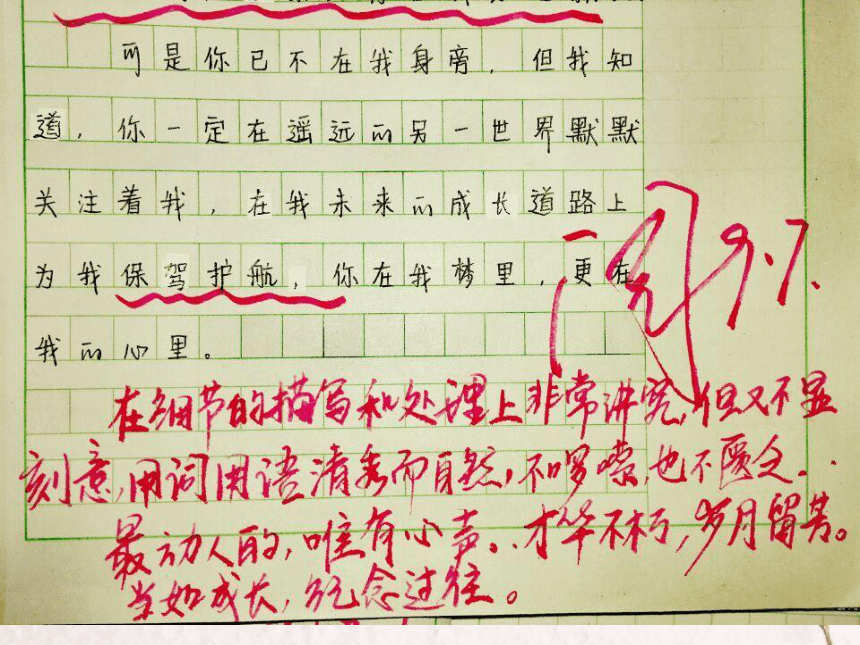 可是你已不在我身旁，但我知
道，你一定在遥远的另一世界默默
关注着我，在我未来的成长道路上
为我保驾护航，你在我梦里，更在
我的心里。
9.7.
在细节的描写和处理上非常讲究，但又不显
刻意，用词用语清秀而自然，不啰嗦，也不匮乏..
最动人的，唯有心声。.才华不朽，岁月留芳。
当如成长，纪念过往。